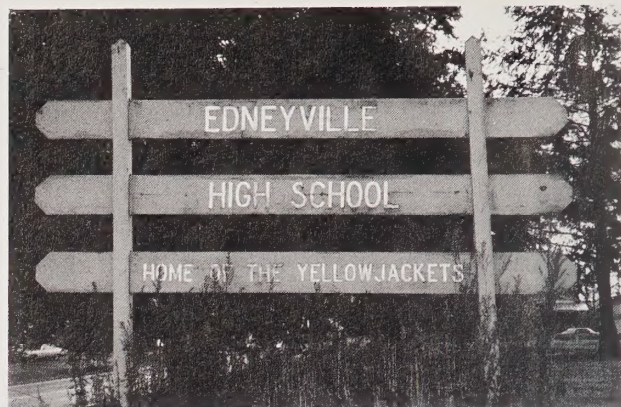 EDNEYVILLE
HIGH SCHOOL
HOME OF THE YELLOWJACKETS